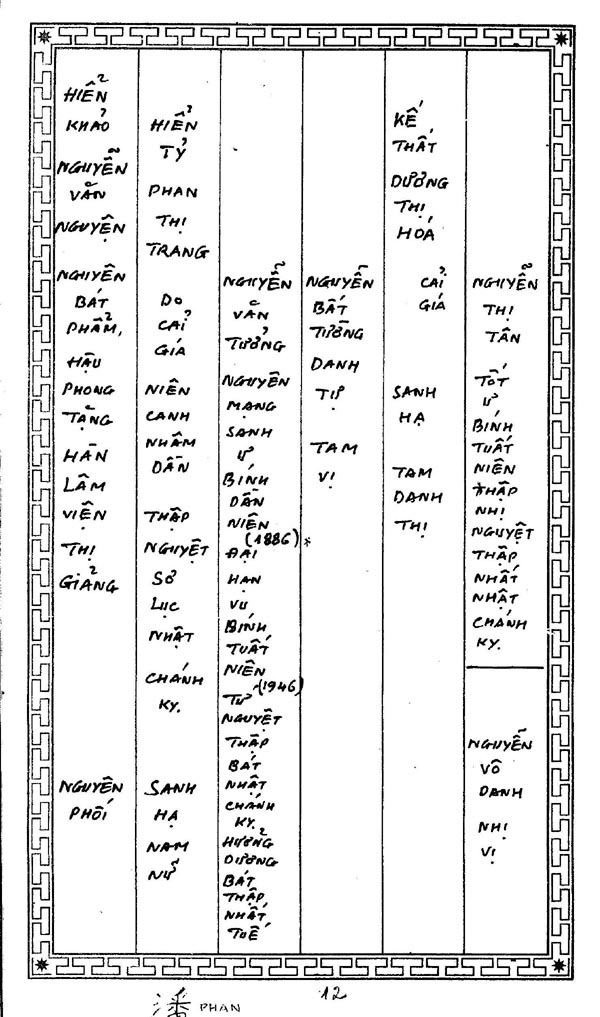 HIỂN
KHẢO
NGUYỄN
VĂN
NGUYỆN
NGUYÊN
BÁT
PHẨM,
HẬU
PHONG
TẶNG
HÀN
LÂM
VIỆN
THỊ
GIẢNG
NGUYÊN
PHỐI
HIỂN
TỶ
PHAN
THỊ
TRANG
DO
CẢI
GIÁ
NIÊN
CANH
NHÂM
DẦN
THẬP
NGUYỆT
SƠ
LỤC
NHẬT
CHÁNH
KỴ.
SANH
HẠ
NAM
NỮ
NGUYỄN
VĂN
TƯỞNG
NGUYÊN
MẠNG
SANH
Ư
BÍNH
DẦN
NIÊN
(1886) *
ĐẠI
HẠN
VU
BÍNH
TUẤT
NIÊN
TỨ (1946)
NGUYỆT
THẬP
BÁT
NHẬT
CHÁNH
KỴ.
HƯỞNG
DƯƠNG
BÁT
THẬP
NHẤT
TUẾ
NGUYỄN
BẤT
TƯỜNG
DANH
TỰ
TAM
VỊ
KẾ
THẤT
DƯƠNG
THỊ
HÓA
CẢI
GIÁ
SANH
HẠ
TAM
DANH
THỊ
NGUYỄN
THỊ
TÂN
TỐT
Ư
BÍNH
TUẤT
NIÊN
THẬP
NHỊ
NGUYỆT
THẬP
NHẤT
NHẬT
CHÁNH
KỴ.
NGUYỄN
VÔ
DANH
NHỊ
VỊ
潘 PHAN
12